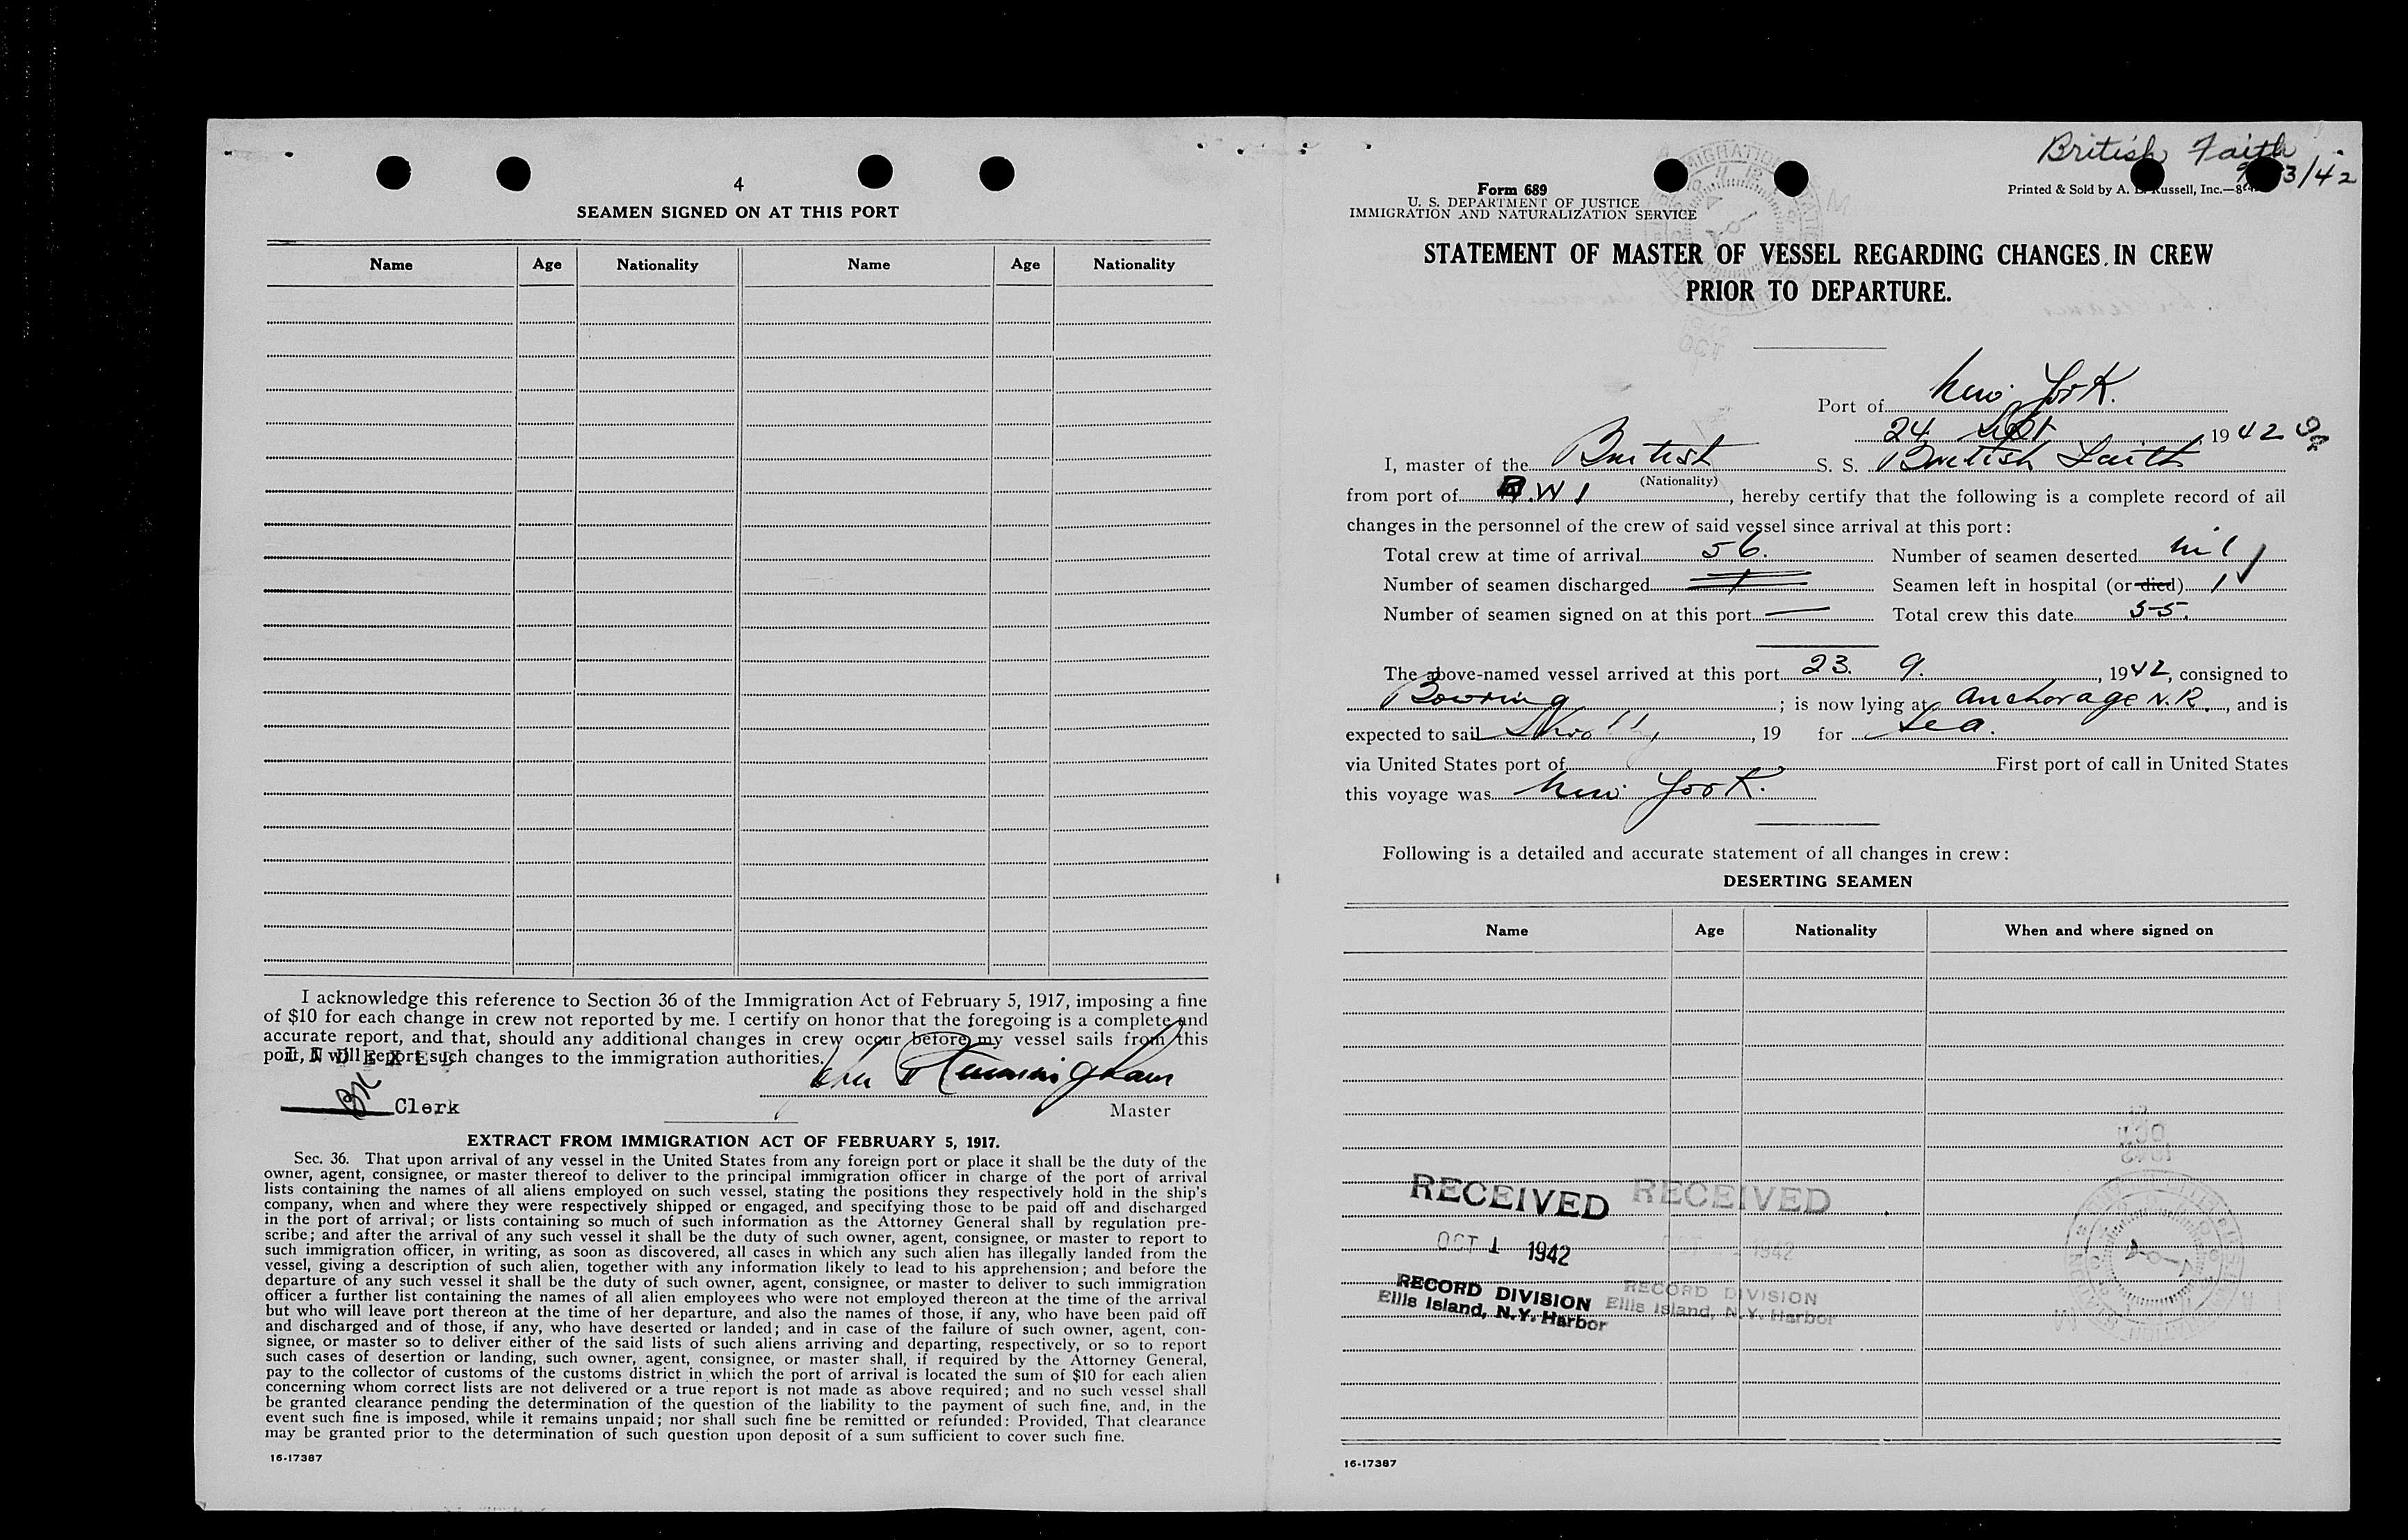 4
SEAMEN SIGNED ON AT THIS PORT
Name Age Nationality Name Age Nationality
I acknowledge this reference to Section 36 of the Immigration Act of February 5, 1917, imposing a fine
of $10 for each change in crew not reported by me. I certify on honor that the foregoing is a complete and
accurate report, and that, should any additional changes in crew occur before my vessel sails from this
port, I will report such changes to the immigration authorities.
INDEXED
Clerk
Master
EXTRACT FROM IMMIGRATION ACT OF FEBRUARY 5, 1917.
Sec. 36. That upon arrival of any vessel in the United States from any foreign port or place it shall be the duty of the
owner, agent, consignee, or master thereof to deliver to the principal immigration officer in charge of the port of arrival
lists containing the names of all aliens employed on such vessel, stating the positions they respectively hold in the ship's
company, when and where they were respectively shipped or engaged, and specifying those to be paid off and discharged
in the port of arrival; or lists containing so much of such information as the Attorney General shall by regulation pre-
scribe; and after the arrival of any such vessel it shall be the duty of such owner, agent, consignee, or master to report to
such immigration officer, in writing, as soon as discovered, all cases in which any such alien has illegally landed from the
vessel, giving a description of such alien, together with any information likely to lead to his apprehension; and before the
departure of any such vessel it shall be the duty of such owner, agent, consignee, or master to deliver to such immigration
officer a further list containing the names of all alien employees who were not employed thereon at the time of the arrival
but who will leave port thereon at the time of her departure, and also the names of those, if any, who have been paid off
and discharged and of those, if any, who have deserted or landed; and in case of the failure of such owner, agent, con-
signee, or master so to deliver either of the said lists of such aliens arriving and departing, respectively, or so to report
such cases of desertion or landing, such owner, agent, consignee, or master shall, if required by the Attorney General,
pay to the collector of customs of the customs district in which the port of arrival is located the sum of $10 for each alien
concerning whom correct lists are not delivered or a true report is not made as above required; and no such vessel shall
be granted clearance pending the determination of the question of the liability to the payment of such fine, and, in the
event such fine is imposed, while it remains unpaid; nor shall such fine be remitted or refunded: Provided, That clearance
may be granted prior to the determination of such question upon deposit of a sum sufficient to cover such fine.
16-17387
British Faith
3/42
Form 689
U. S. DEPARTMENT OF JUSTICE
IMMIGRATION AND NATURALIZATION SERVICE
Printed & Sold by A. Russell, Inc.—8
STATEMENT OF MASTER OF VESSEL REGARDING CHANGES IN CREW
PRIOR TO DEPARTURE.
Port of New York.
24 Sept, 1942
I, master of the British S. S. British Faith
(Nationality)
from port of B.W I, hereby certify that the following is a complete record of all
changes in the personnel of the crew of said vessel since arrival at this port:
Total crew at time of arrival 56. Number of seamen deserted nil
Number of seamen discharged 1 Seamen left in hospital (or died) 1
Number of seamen signed on at this port — Total crew this date 55.
The above-named vessel arrived at this port 23. 9., 1942, consigned to
Bowring; is now lying at Anchorage N.R., and is
expected to sail, 19 for Sea.
via United States port of First port of call in United States
this voyage was New York.
Following is a detailed and accurate statement of all changes in crew:
DESERTING SEAMEN
Name Age Nationality When and where signed on
RECEIVED RECEIVED
OCT 1 1942 OCT 1942
RECORD DIVISION RECORD DIVISION
Ellis Island, N.Y. Harbor Ellis Island, N.Y. Harbor
16-17387